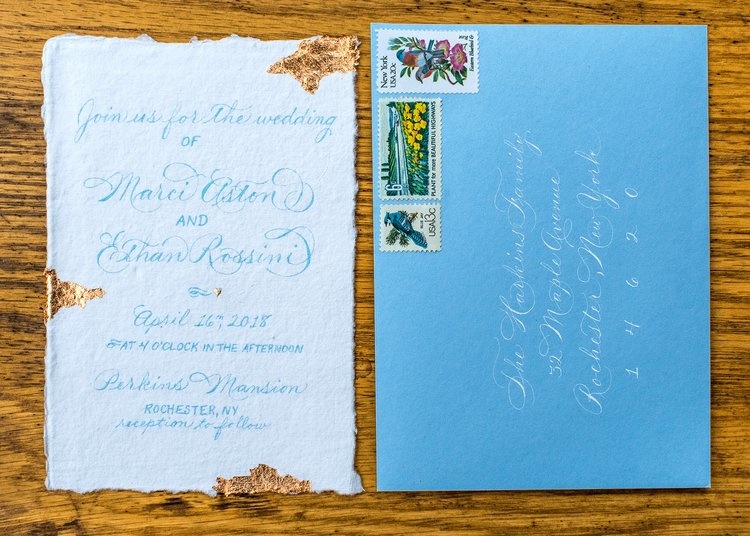 Join us for the wedding
OF
Marci Aston
AND
Ethan Rossini
April 16th, 2018
AT 4 O'CLOCK IN THE AFTERNOON
Perkins Mansion
ROCHESTER, NY
reception to follow
New York
USA 20c
Eastern Bluebird &
PLANT for more BEAUTIFUL HIGHWAYS
6
USA 13c
The Harkins Family
32 Maple Avenue
Rochester, New York
14620